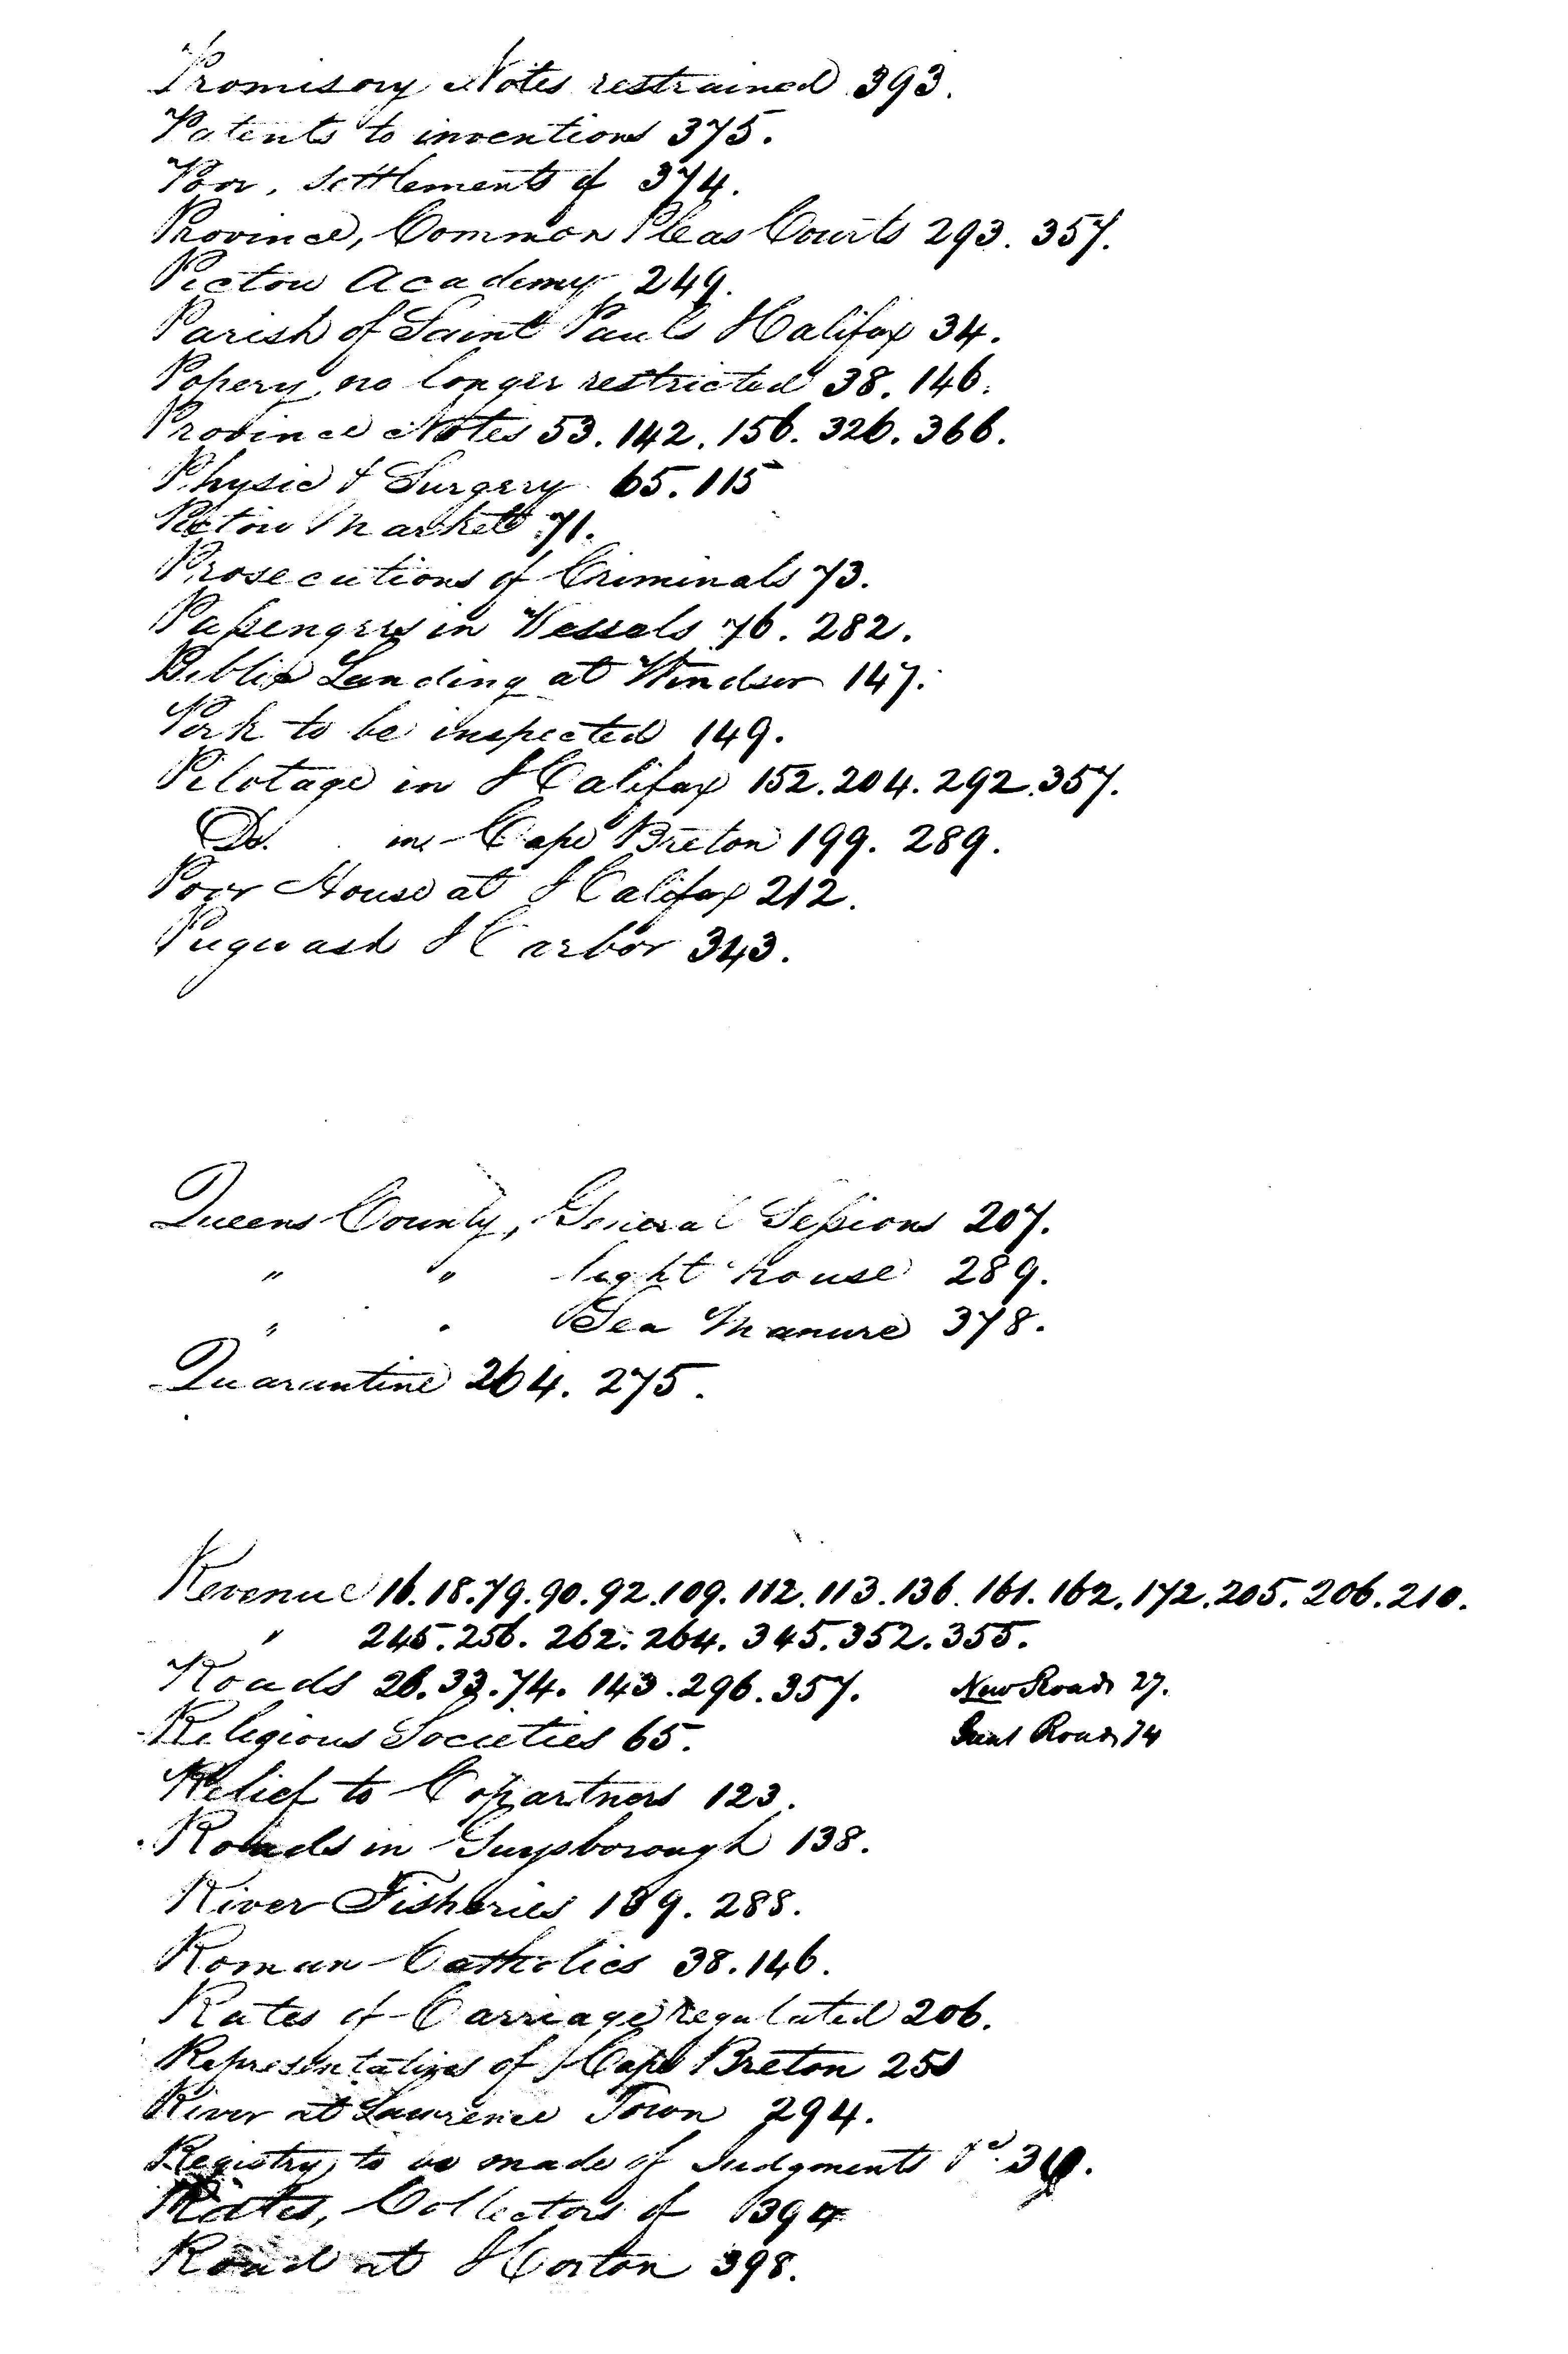 Promisory Notes restrained 393.
Patents to inventions 375.
Poor, settlements of 374.
Province, Common Pleas Courts 293. 357.
Pictou Academy 249.
Parish of Saint Pauls Halifax 34.
Popery no longer restricted 38. 146.
Province Notes 53. 142. 156. 326. 366.
Physic & Surgery 65. 115
Pictou Market 71.
Prosecutions of Criminals 73.
Passengers in Vessels 76. 282.
Public Landing at Windsor 147.
Pork to be inspected 149.
Pilotage in Halifax 152. 204. 292. 357.
Do. in Cape Breton 199. 289.
Poor House at Halifax 212.
Pugwash Harbor 343.
Queens County, General Sessions 207.
" " light house 289.
" " Sea Manure 378.
Quarantine 264. 275.
Revenue 16. 18. 79. 90. 92. 109. 112. 113. 136. 161. 162. 172. 205. 206. 210.
" 245. 256. 262. 264. 345. 352. 355.
Roads 26. 33. 74. 143. 296. 357. New Roads 27.
Religious Societies 65. Roads 74
Relief to Copartners 123.
Roads in Guysborough 138.
River Fisheries 189. 288.
Roman Catholics 38. 146.
Rates of Carriage regulated 206.
Representatives of Cape Breton 250
River at Lawrence Town 294.
Registry to be made of Judgments
Rates, Collectors of 394
Road at Horton 398.